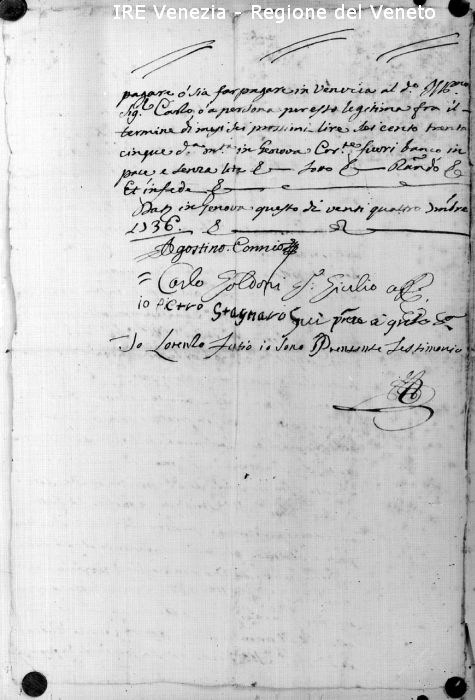 IRE Venezia - Regione del Veneto
pagare ò sia far pagare in Venezia al d.o M.
Sig.r Carlo, ò à persona per esso legitima fra il
termine di mesi sei prossimi lire sei cento trenta
cinque d.a m.ta in Genova Cor.te fuori banco in
pace e senza lite &
Et in fede &
Dat. in Genova questo dì venti quattro
1736
Agostino Connio
= Carlo Goldoni Giulio aff.
io Pietro Stagnaro fui p.nte à q.to
Io Lorenzo io sono Presente Testimonio